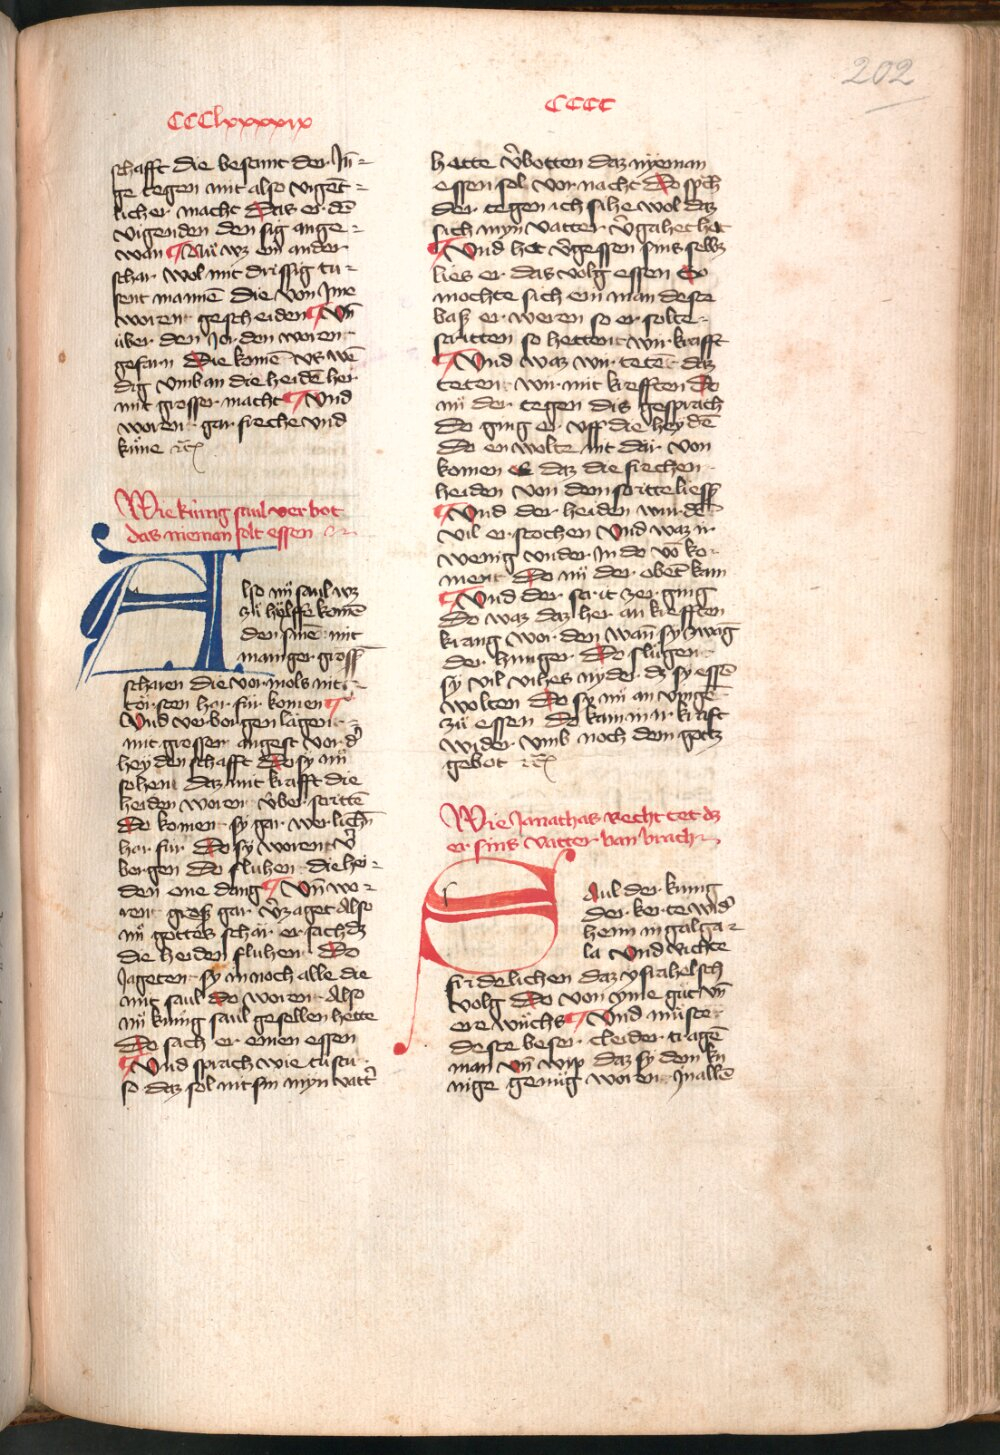 202
CCClxxxxix
schafft die bestunt der Jū⸗
ge tegen mit also vigēt⸗
licher macht Das er dē
vigenden den sig ange⸗
wan ¶ Nuͦ wz ein ander
schar wol mit drissig tu⸗
sent mannē die von Jme
woren gescheiden ¶ Vn̄
uͤber den Jordon woren
gefarn Die komē vswē
dig vmb an die heidē her
mit grosser macht ¶ Vnd
woren gar freche vnd
kuͤne ⁊c̄
Wie kúnig saul verbot
das nieman solt essen
Also nuͦ saul wz
zuͦ hoͤlffe komē
den sinē mit
maniger gross
scharen die vor mols nit
torsten har fúr komen ¶
Vnd verborgen lagent
mit grosser angest vor dʼ
heydenschafft Do sy nuͦ
sohent daz mit krafft die
heiden woren v̓ber strittē
Do koment sy gar werlichn̄
har fúr Do sy worent v̓
bergen Do fluhen die hei⸗
den one dang ¶ Vn̄ wo⸗
rent gros gar v̓zaget Also
nuͦ gottes schar ersach dz
die heiden fluhent Do
Jageten sy in noch alle die
mit saul do woren Also
nuͦ kúnig saul gesellen hette
Do sach er einen essen
¶ Vnd sprach wie tustu
so daz sol nit sin myn vattʼ
CCCC
hette v̓botten daz nyeman
essen sol vor nacht Do sp̄ch
der tegen ich sihe wol daz
sich myn vatter v̓gahet het
¶ Vnd het v̓gessen sins selbz
lies er das volg essen So
mochte sich ein man deste
bas er weren so er solte
stritten so hettent wir krafft
¶ Vnd waz wir tetēt daz
tetent wir mit krefften Do
nuͦ der tegen dis gesprach
do ging er vff die heydē
Do en wolte nit dar von
komen er daz die frechen
heiden von dem stritte liessē
¶ Vnd der heiden wurdēt
vil erstochen Vnd waz ir
wenig vnder in do vō ko⸗
ment Do nuͦ der obēt kam
¶ Vnd der strit zerging
Do waz daz her an krefften
krang worden wan̄ sy zwāg
der hunger Do slugent
sy vil vihes nyder dz sy essē
wolten Do sy nuͦ an vingē
zuͦ essen Do kam in ir kraft
wider vmb noch dem gotz
gebot ⁊c̄
Wie Janathas recht tet dz
er sins vatter ban brach
Saul der kúnig
der kerte widʼ
heim in galga⸗
la Vnd richte
fridelichen daz ysrahelsch
volg Do von yme guͦt vn̄
ere wuͦchs ¶ Vnd muͦste
deste beser cleider tragē
man vn̄ wip daz sy dem kú
nige genuͦg woren Jn allē